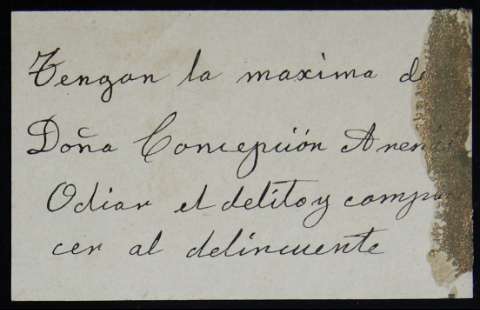 Tengan la maxima de
Doña Concepción Arenal
Odiar el delito y compa
cer al delincuente